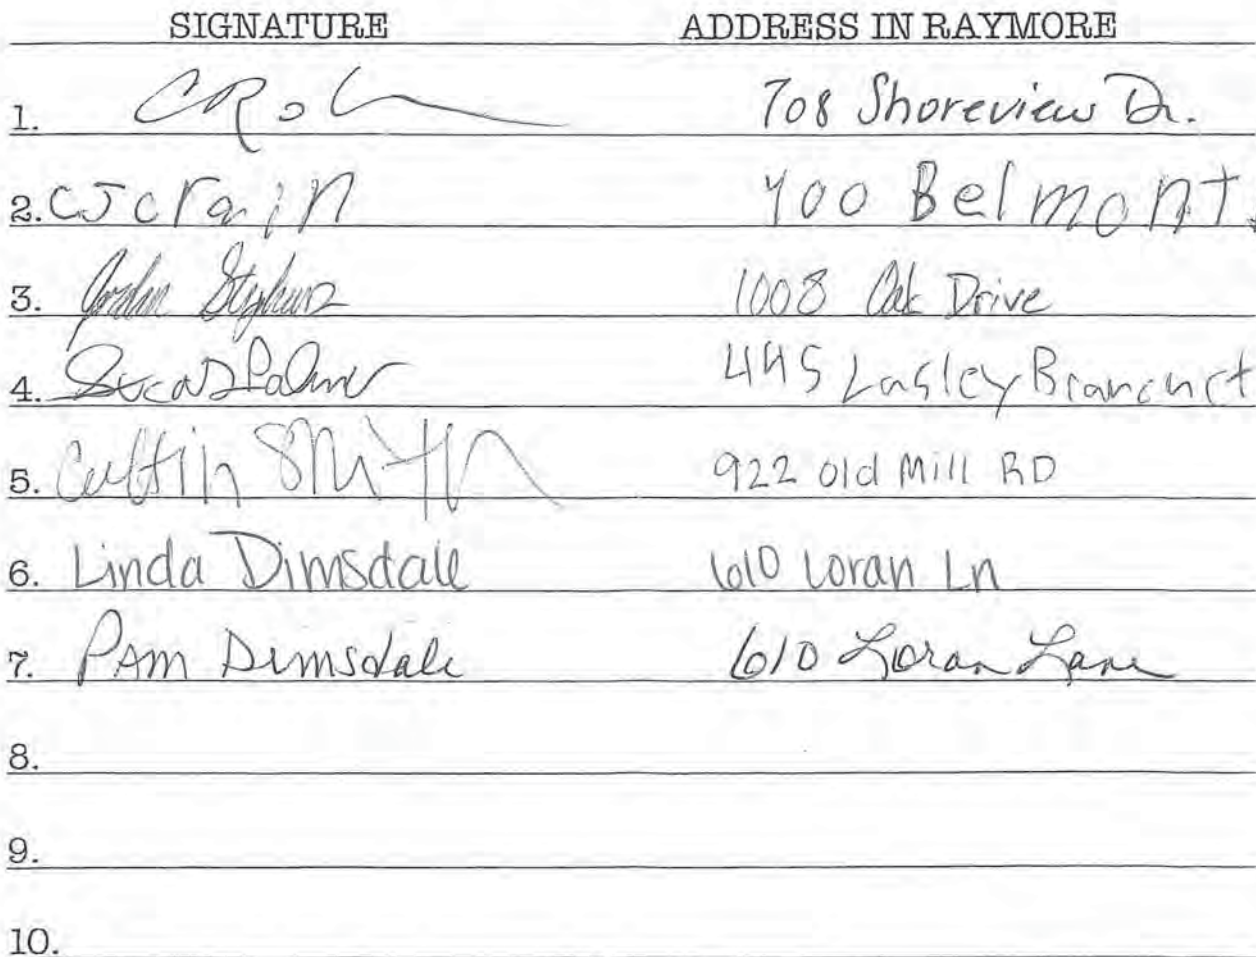 SIGNATURE ADDRESS IN RAYMORE
1. 708 Shoreview Dr.
2. CJ Crain 400 Belmont.
3. Jordan Stephens 1008 Oak Drive
4. Lucas Palmer 445 Lasley
5. Smith 922 old Mill RD
6. Linda Dimsdale 610 Loran Ln
7. PAM Dimsdale 610 Loran Lane
8.
9.
10.